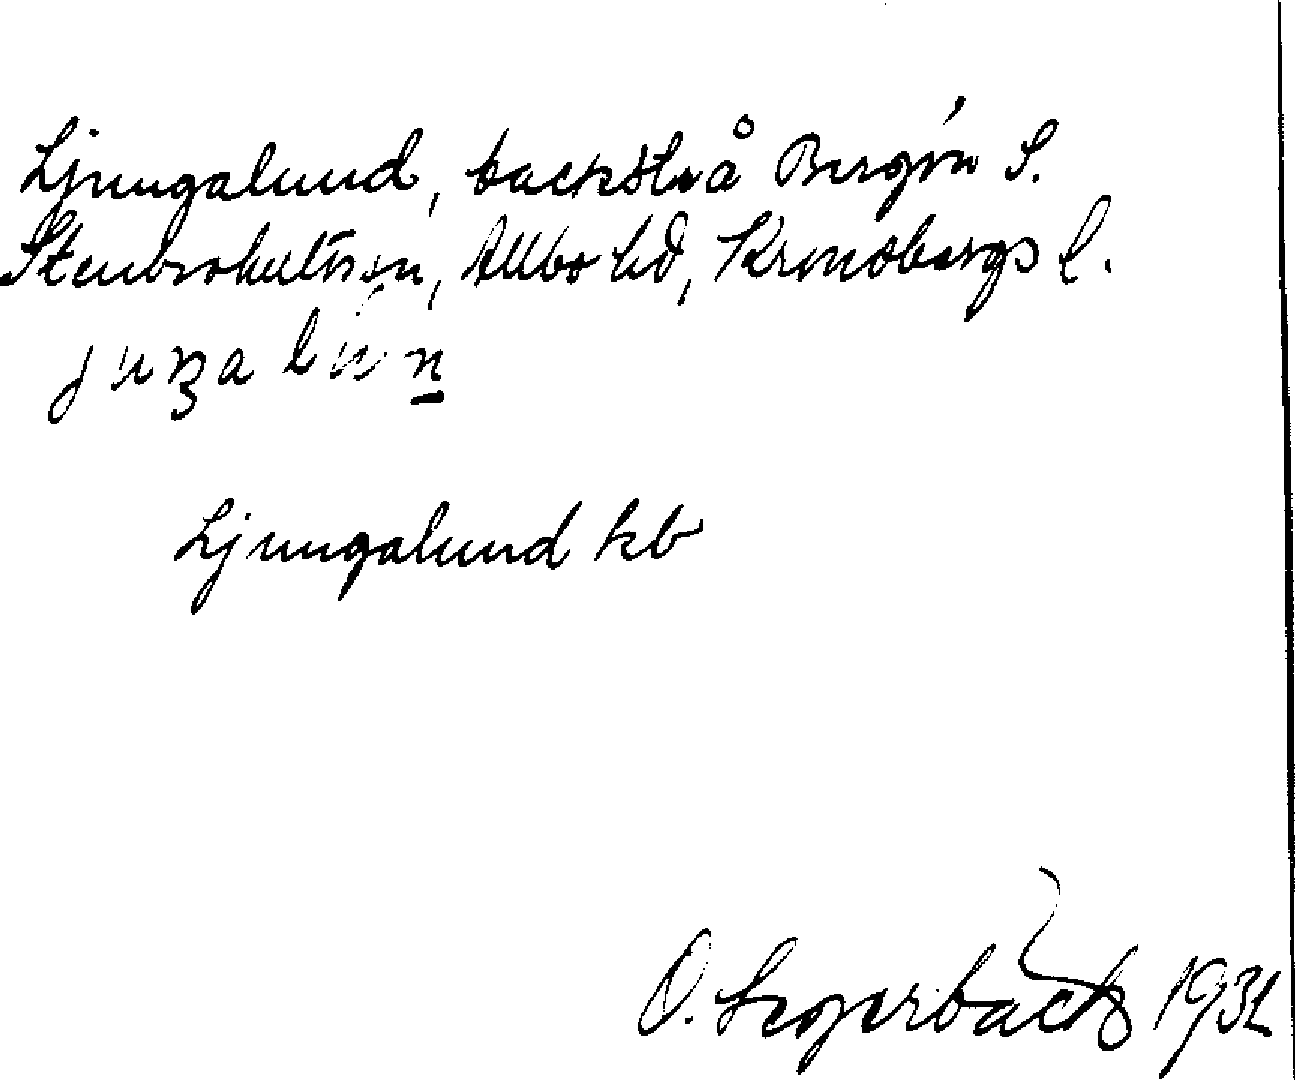 Ljungalund, backst. på Bergön S.
Stenbrohults sn, Allbo hd, Kronobergs l.
Ljungalund kb
O. Segerbäck 1932